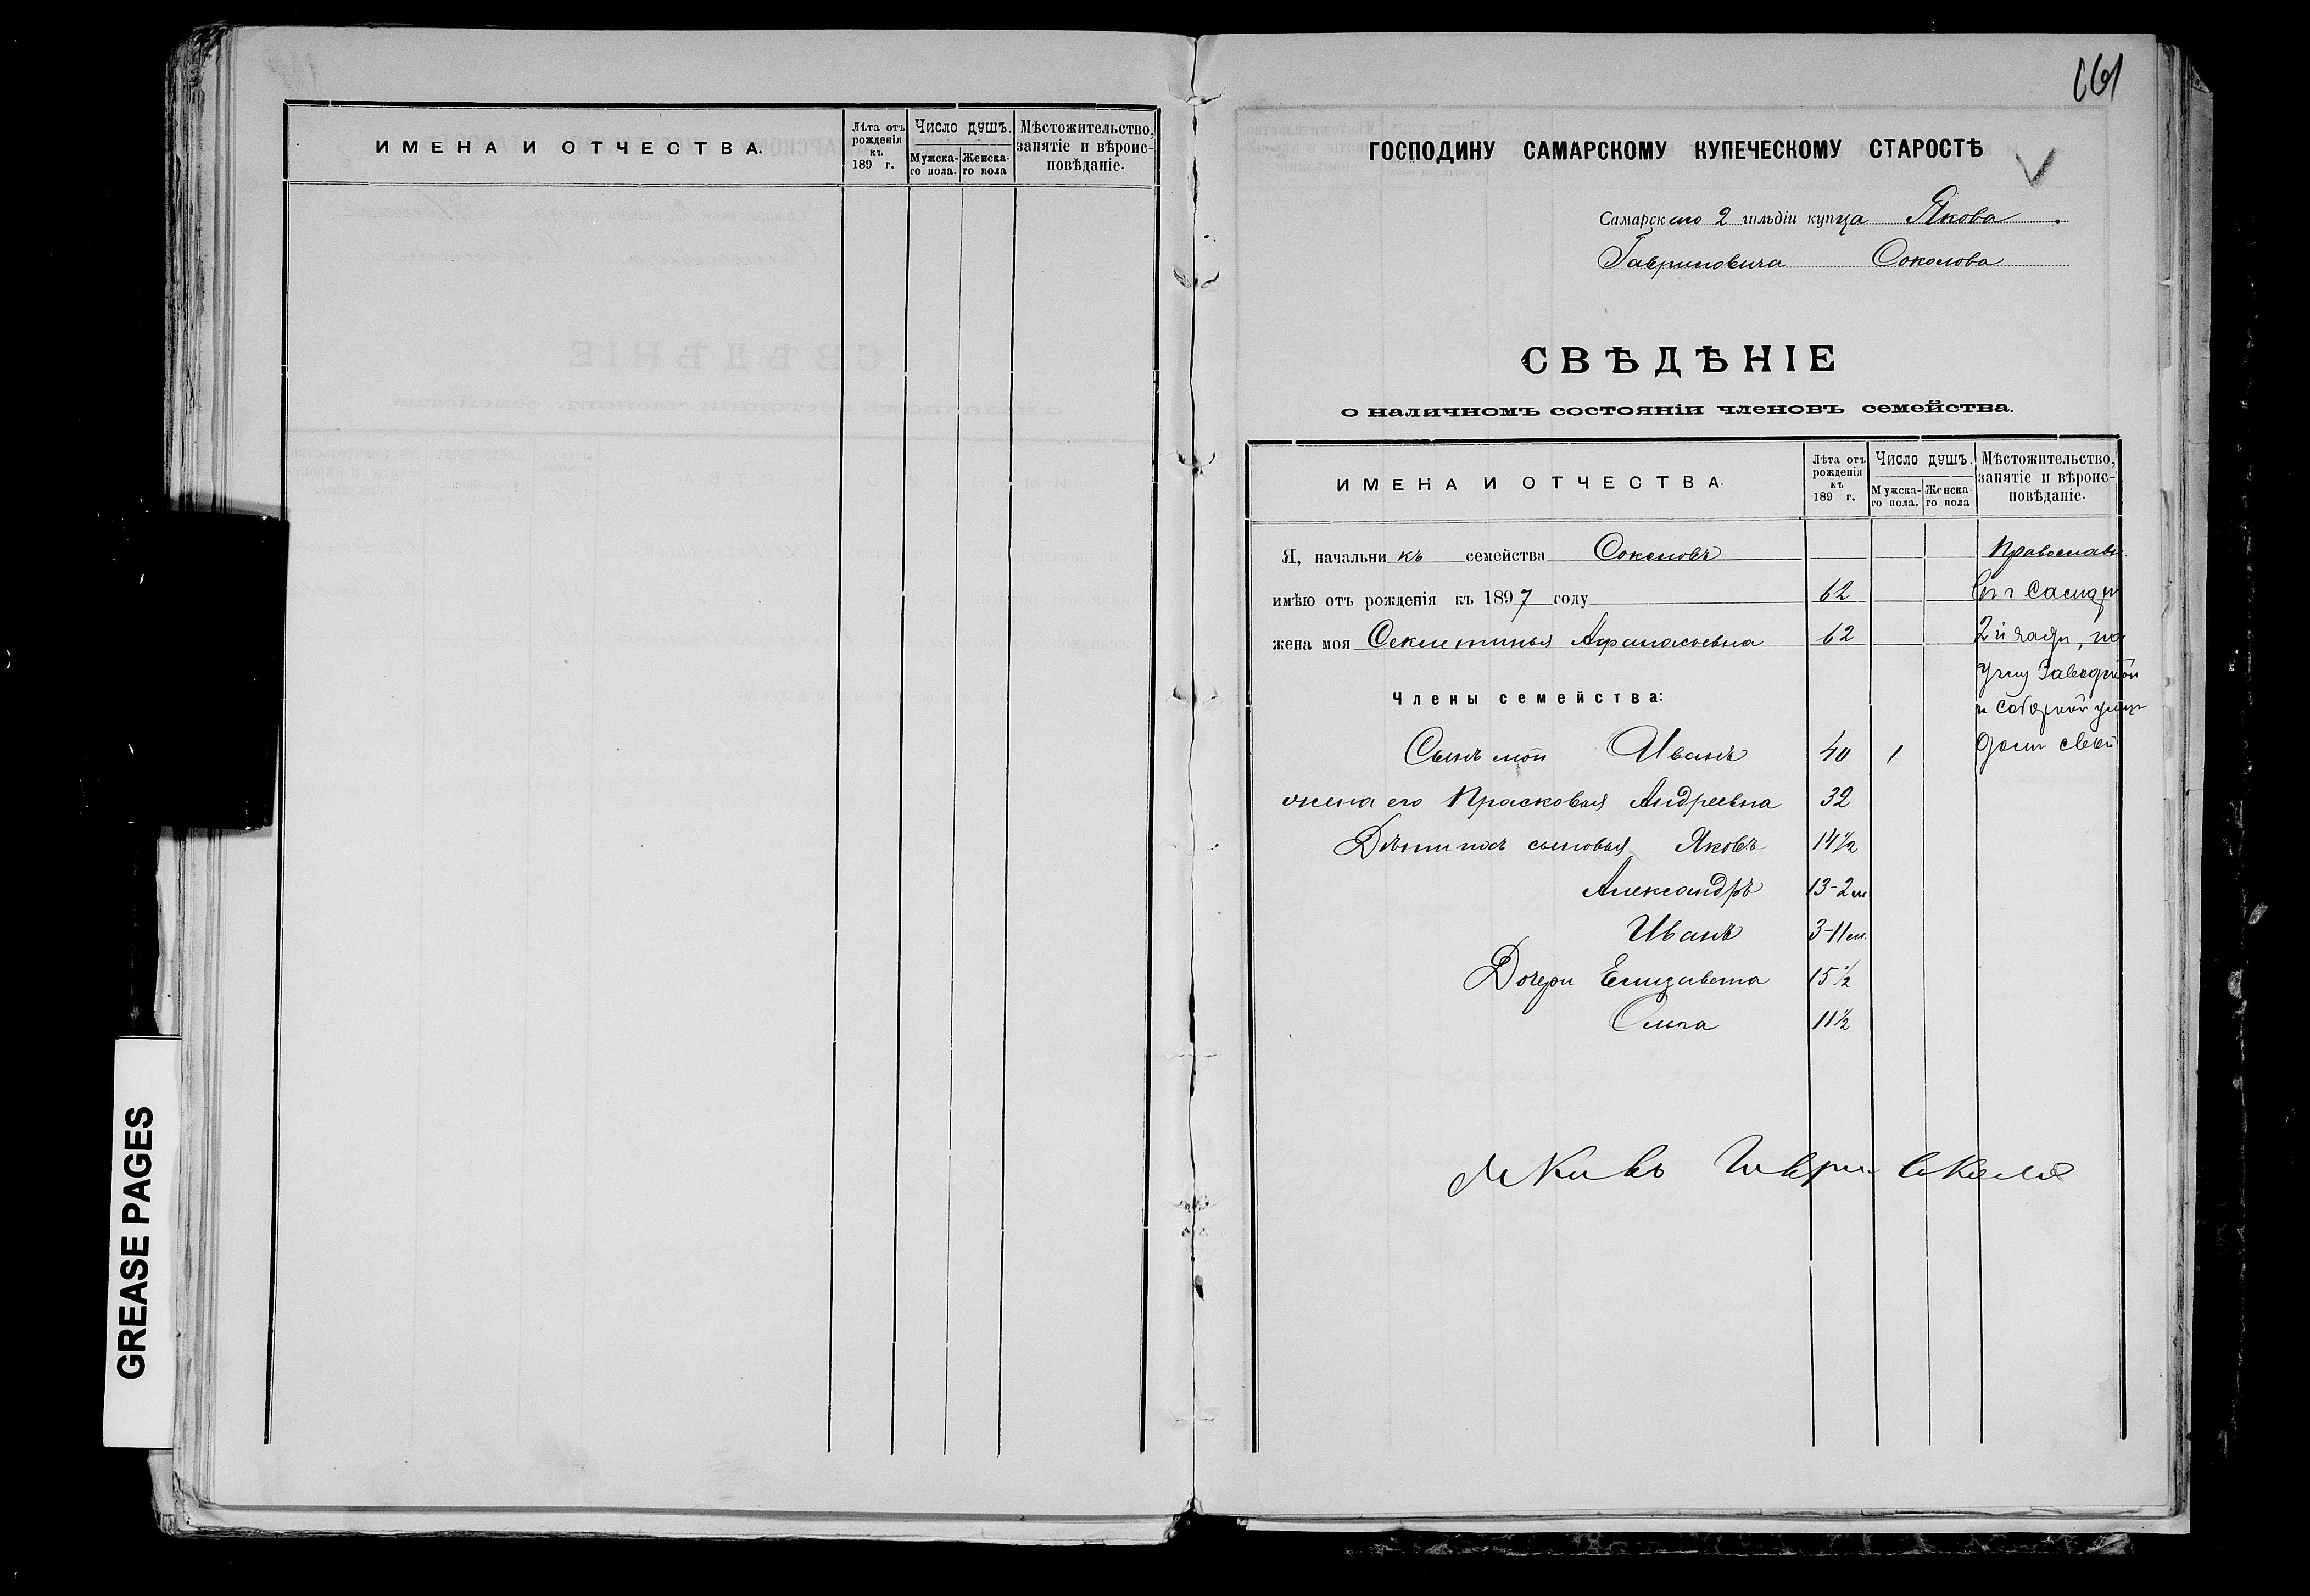 ИМЕНА И ОТЧЕСТВА.
Лѣта отъ рожденія къ 189 г.
Число душъ.
Мужскаго пола.
Женскаго пола
Мѣстожительство, занятіе и вѣроисповѣданіе.
GREASE PAGES
161
ГОСПОДИНУ САМАРСКОМУ КУПЕЧЕСКОМУ СТАРОСТѢ
Самарскаго 2 гильдіи купца Якова
Гавриловича Соколова
СВѢДѢНІЕ
о наличномъ состояніи членовъ семейства.
ИМЕНА И ОТЧЕСТВА.
Лѣта отъ рожденія къ 189 г.
Число душъ.
Мужскаго пола.
Женскаго пола
Мѣстожительство, занятіе и вѣроисповѣданіе.
Я, начальникъ семейства Соколовъ Православн.
имѣю отъ рожденія къ 1897 году 62 въ г Самарѣ
жена моя Секлетинья Афанасьевна 62 2й части, на
углу Заводской
Члены семейства:
и Соборной улицъ
Сынъ мой Иванъ 40 1 домъ свой
жена его Прасковья Андреевна 32
Дѣти ихъ сыновья Яковъ 14½
Александръ 13-2 м
Иванъ 3-11 м.
Дочери Елизавета 15½
Ольга 11½
Яковъ Гаври Соколов